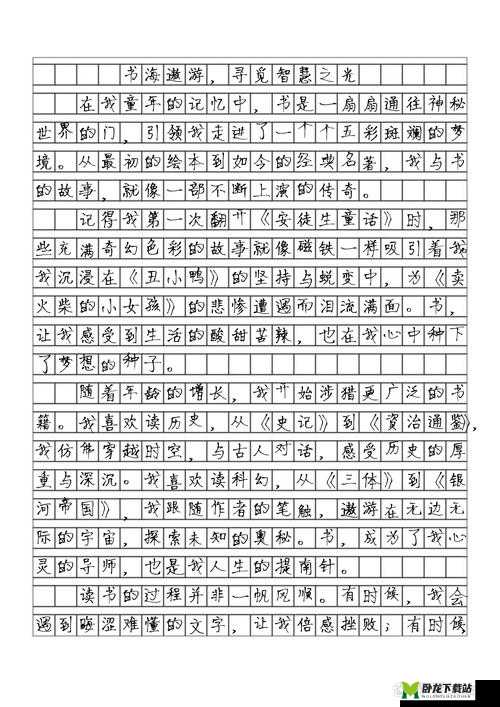 书海遨游，寻觅智慧之光
在我童年的记忆中，书是一扇扇通往神秘
世界的门，引领我走进了一个个五彩斑斓的梦
境。从最初的绘本到如今的经典名著，我与书
的故事，就像一部不断上演的传奇。
记得我第一次翻开《安徒生童话》时，那
些充满奇幻色彩的故事就像磁铁一样吸引着我
我沉浸在《丑小鸭》的坚持与蜕变中，为《卖
火柴的小女孩》的悲惨遭遇而泪流满面。书，
让我感受到生活的酸甜苦辣，也在我心中种下
了梦想的种子。
随着年龄的增长，我开始涉猎更广泛的书
籍。我喜欢读历史，从《史记》到《资治通鉴》，
我仿佛穿越时空，与古人对话，感受历史的厚
重与深沉。我喜欢读科幻，从《三体》到《银
河帝国》，我跟随作者的笔触，遨游在无边无
际的宇宙，探索未知的奥秘。书，成为了我心
灵的导师，也是我人生的指南针。
读书的过程并非一帆风顺。有时候，我会
遇到晦涩难懂的文字，让我倍感挫败；有时候
卧龙下载站